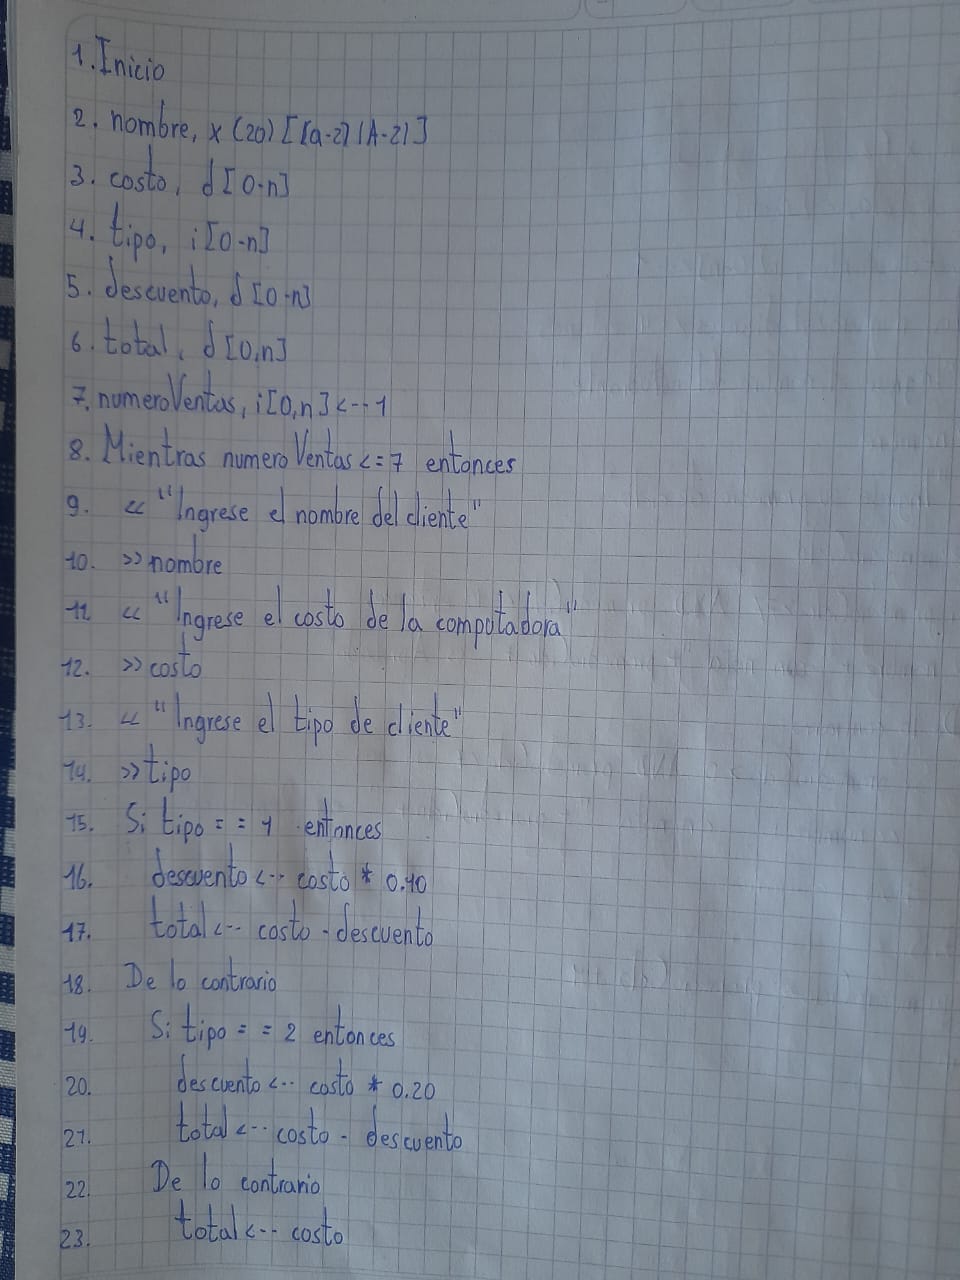 1. Inicio
2. nombre, x (20) [(a-z) (A-Z)]
3. costo, d [0-n]
4. tipo, i [0-n]
5. descuento, d [0-n]
6. total, d [0,n]
7. numeroVentas, i [0,n] <-- 1
8. Mientras numeroVentas <= 7 entonces
9. << "Ingrese el nombre del cliente"
10. >> nombre
11. << "Ingrese el costo de la computadora"
12. >> costo
13. << "Ingrese el tipo de cliente"
14. >> tipo
15. Si tipo = = 1 entonces
16. descuento <-- costo * 0.10
17. total <-- costo - descuento
18. De lo contrario
19. Si tipo = = 2 entonces
20. descuento <-- costo * 0.20
21. total <-- costo - descuento
22. De lo contrario
23. total <-- costo